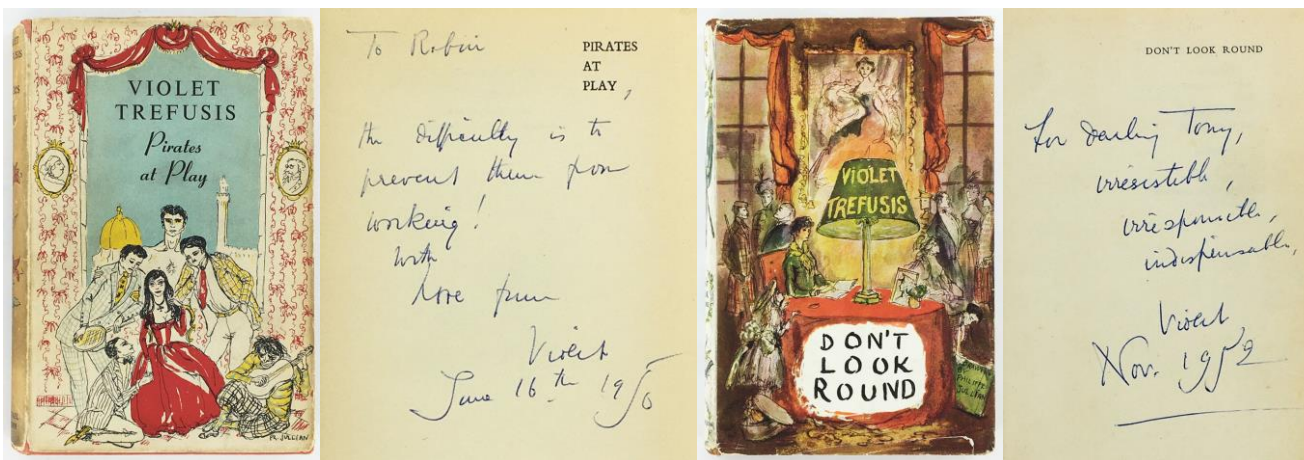 VIOLET
TREFUSIS
Pirates
at Play
PH. JULLIAN
To Robin
PIRATES
AT
PLAY,
the difficulty is to
prevent them from
working!
With
love from
Violet
June 16th 1950
VIOLET
TREFUSIS
DON'T
LOOK
ROUND
PHILIPPE
JULLIAN
DON'T LOOK ROUND
For darling Tony,
irresistible,
irresponsible,
indispensable,
Violet
Nov. 1952